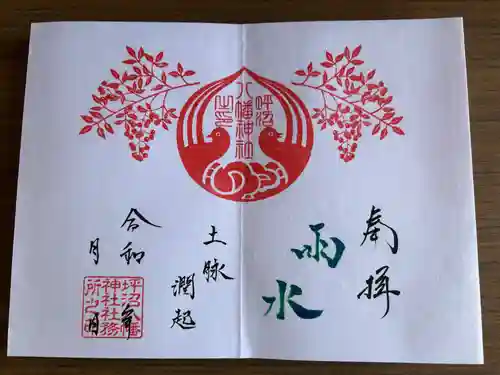 奉拝
雨水
土脉
潤起
令和
年
月
月
坪沼
八幡神社
之印
坪沼八幡
神社社務
所之印